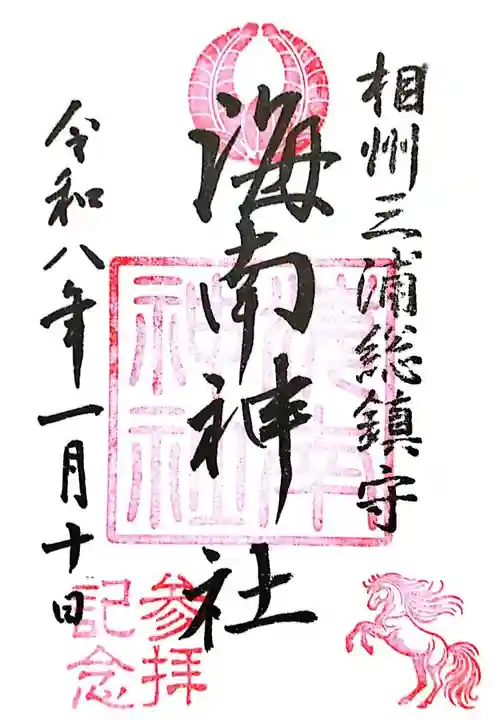 相州三浦総鎮守
海南神社
海南神社
参拝記念
令和八年一月十日